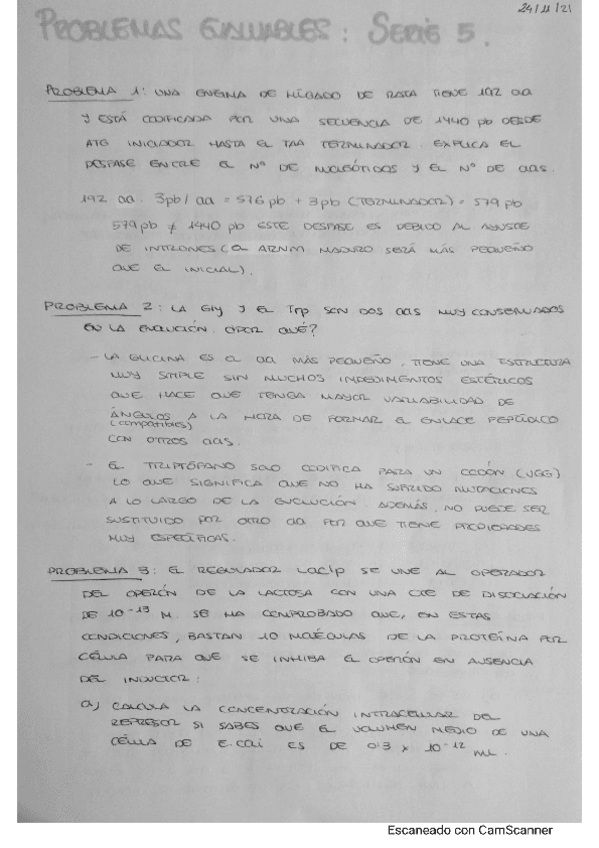 24/11/21
PROBLEMAS EVALUABLES: SERIE 5.
PROBLEMA 1: UNA ENZIMA DE HÍGADO DE RATA TIENE 192 aa
Y ESTÁ CODIFICADA POR UNA SECUENCIA DE 1440 pb DESDE
ATG INICIADOR HASTA EL TAA TERMINADOR. EXPLICA EL
DESFASE ENTRE EL Nº DE NUCLEÓTIDOS Y EL Nº DE aas.
192 aa · 3pb/aa = 576 pb + 3 pb (TERMINADOR) = 579 pb
579 pb ≠ 1440 pb ESTE DESFASE ES DEBIDO AL AJUSTE
DE INTRONES (EL ARNm MADURO SERÁ MÁS PEQUEÑO
QUE EL INICIAL).
PROBLEMA 2: LA Gly Y EL Trp SON DOS aas MUY CONSERVADOS
EN LA EVOLUCIÓN. ¿POR QUÉ?
- LA GLICINA ES EL aa MÁS PEQUEÑO, TIENE UNA ESTRUCTURA
MUY SIMPLE SIN MUCHOS IMPEDIMENTOS ESTÉRICOS
QUE HACE QUE TENGA MAYOR VARIABILIDAD DE
ÁNGULOS A LA HORA DE FORMAR EL ENLACE PEPTÍDICO
(compatibles)
CON OTROS aas.
- EL TRIPTÓFANO SOLO CODIFICA PARA UN CODÓN (UGG)
LO QUE SIGNIFICA QUE NO HA SUFRIDO MUTACIONES
A LO LARGO DE LA EVOLUCIÓN. ADEMÁS, NO PUEDE SER
SUSTITUIDO POR OTRO aa POR QUE TIENE PROPIEDADES
MUY ESPECÍFICAS.
PROBLEMA 3: EL REGULADOR LacIp SE UNE AL OPERADOR
DEL OPERÓN DE LA LACTOSA CON UNA CTE DE DISOCIACIÓN
DE 10⁻¹³ M. SE HA COMPROBADO QUE, EN ESTAS
CONDICIONES, BASTAN 10 MOLÉCULAS DE LA PROTEÍNA POR
CÉLULA PARA QUE SE INHIBA EL OPERÓN EN AUSENCIA
DEL INDUCTOR:
a) CALCULA LA CONCENTRACIÓN INTRACELULAR DEL
REPRESOR SI SABES QUE EL VOLUMEN MEDIO DE UNA
CÉLULA DE E. coli ES DE 0'3 x 10⁻¹² mL.
Escaneado con CamScanner